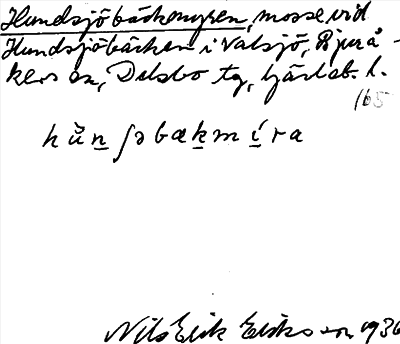 Hundsjöbäckmyren, mosse vid
Hundsjöbäcken i Valsjö, Bjurå-
kers sn, Delsbo tg, Gävleb. l.
165
hŭn ʃəbækmíra
Nils Erik Eriksson 1936